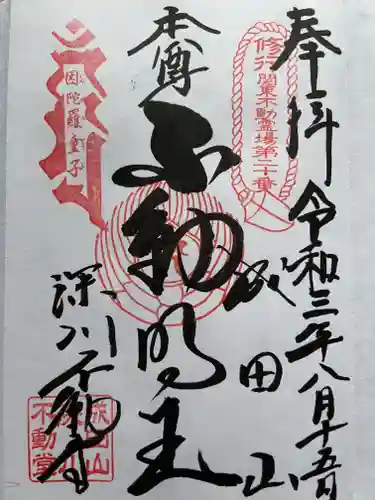 奉拝
令和三年八月十五日
修行
関東不動霊場第二十番
成田山
本尊
不動明王
因陀羅童子
深川不動堂
成田山
不動堂